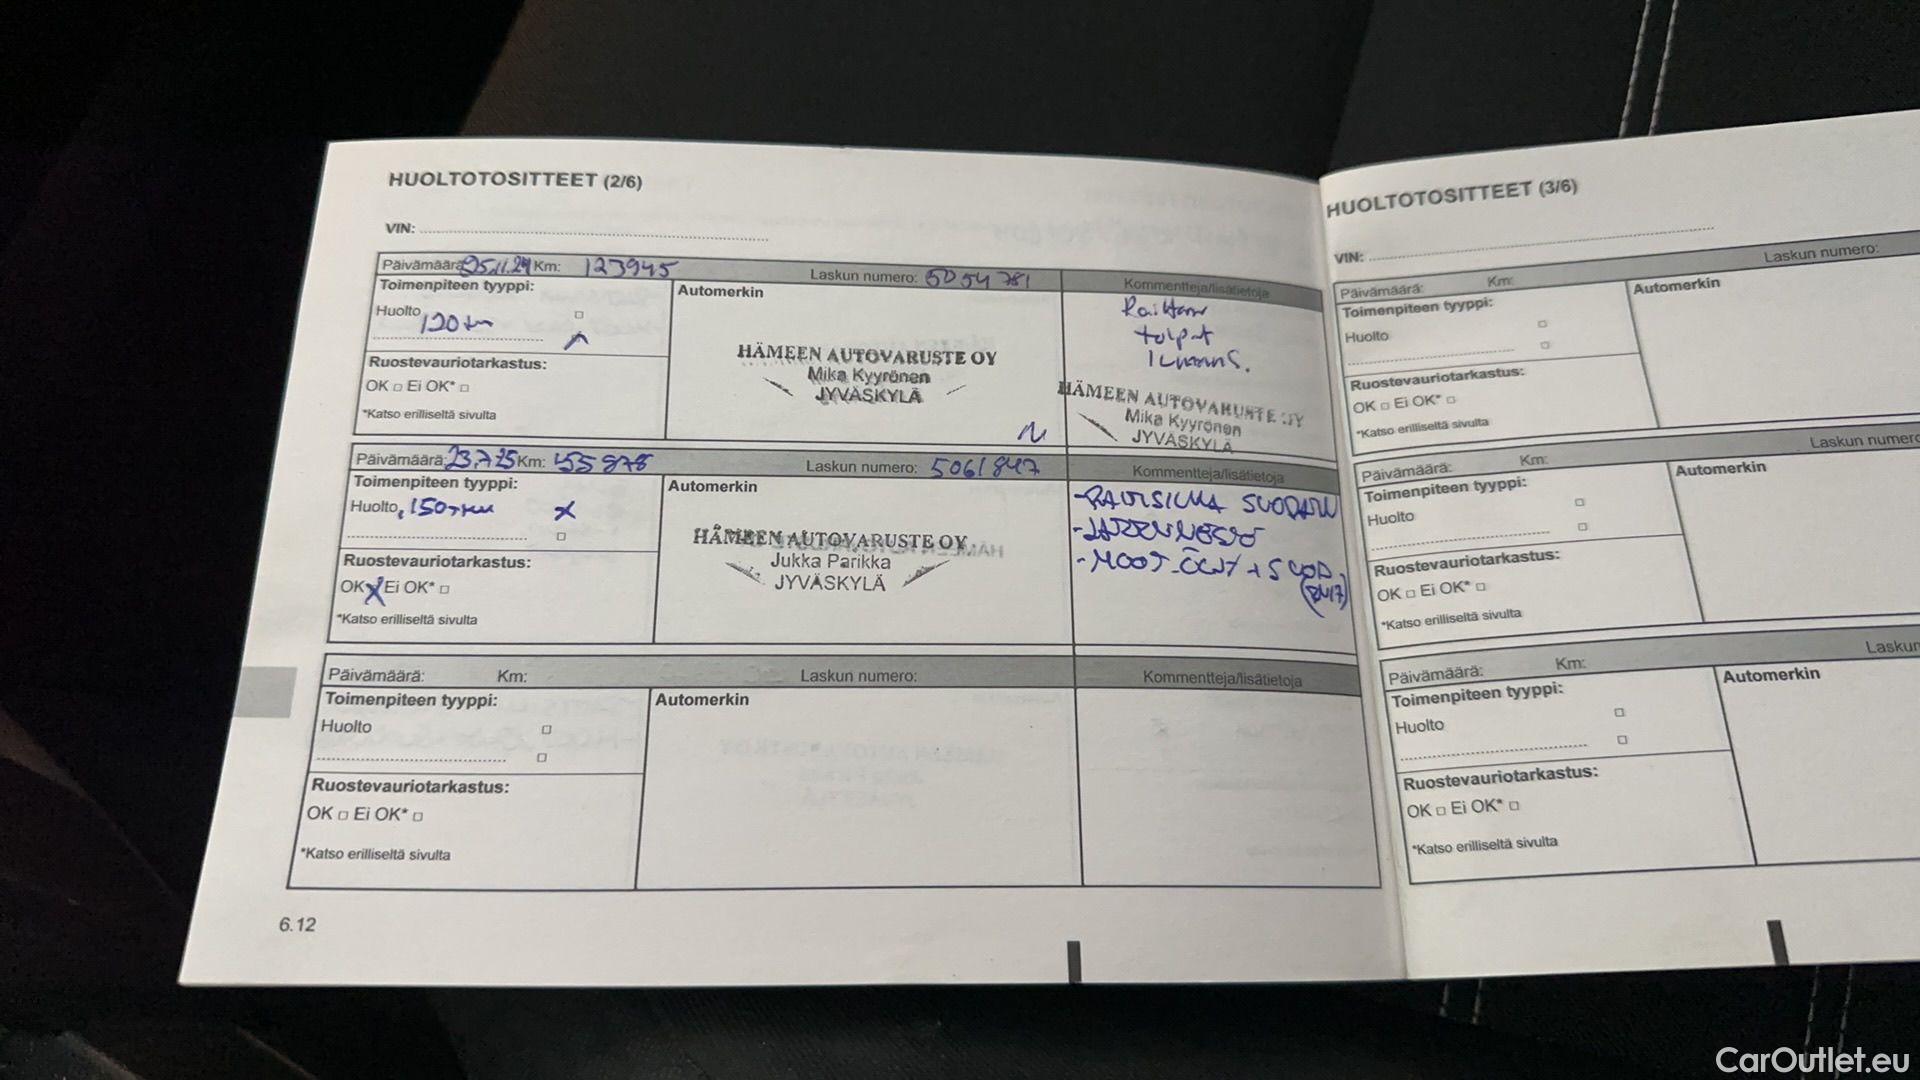 HUOLTOTOSITTEET (2/6)
VIN:
Päivämäärä: 25.11.24 Km: 123945 Laskun numero: 5054781 Kommentteja/lisätietoja
Toimenpiteen tyyppi:
Huolto
120 tkm
Ruostevauriotarkastus:
OK Ei OK*
*Katso erilliseltä sivulta
Automerkin
HÄMEEN AUTOVARUSTE OY
Mika Kyyrönen
JYVÄSKYLÄ
Raitisilm
tulpat
Ilmans.
HÄMEEN AUTOVARUSTE OY
Mika Kyyrönen
JYVÄSKYLÄ
Päivämäärä: 23.7.25 Km: 155878 Laskun numero: 5061847 Kommentteja/lisätietoja
Toimenpiteen tyyppi:
Huolto 150 tkm X
Ruostevauriotarkastus:
OK X Ei OK*
*Katso erilliseltä sivulta
Automerkin
HÄMEEN AUTOVARUSTE OY
Jukka Parikka
JYVÄSKYLÄ
SUODATIN
-JARRUNESTE
-MOOT.ÖLJY + SUOD.
(RN17)
Päivämäärä: Km: Laskun numero: Kommentteja/lisätietoja
Toimenpiteen tyyppi:
Huolto
Ruostevauriotarkastus:
OK Ei OK*
*Katso erilliseltä sivulta
Automerkin
6.12
HUOLTOTOSITTEET (3/6)
VIN:
Päivämäärä: Km: Laskun numero:
Toimenpiteen tyyppi:
Huolto
Ruostevauriotarkastus:
OK Ei OK*
*Katso erilliseltä sivulta
Automerkin
Päivämäärä: Km: Laskun numero
Toimenpiteen tyyppi:
Huolto
Ruostevauriotarkastus:
OK Ei OK*
*Katso erilliseltä sivulta
Automerkin
Päivämäärä: Km: Laskun
Toimenpiteen tyyppi:
Huolto
Ruostevauriotarkastus:
OK Ei OK*
*Katso erilliseltä sivulta
Automerkin
CarOutlet.eu